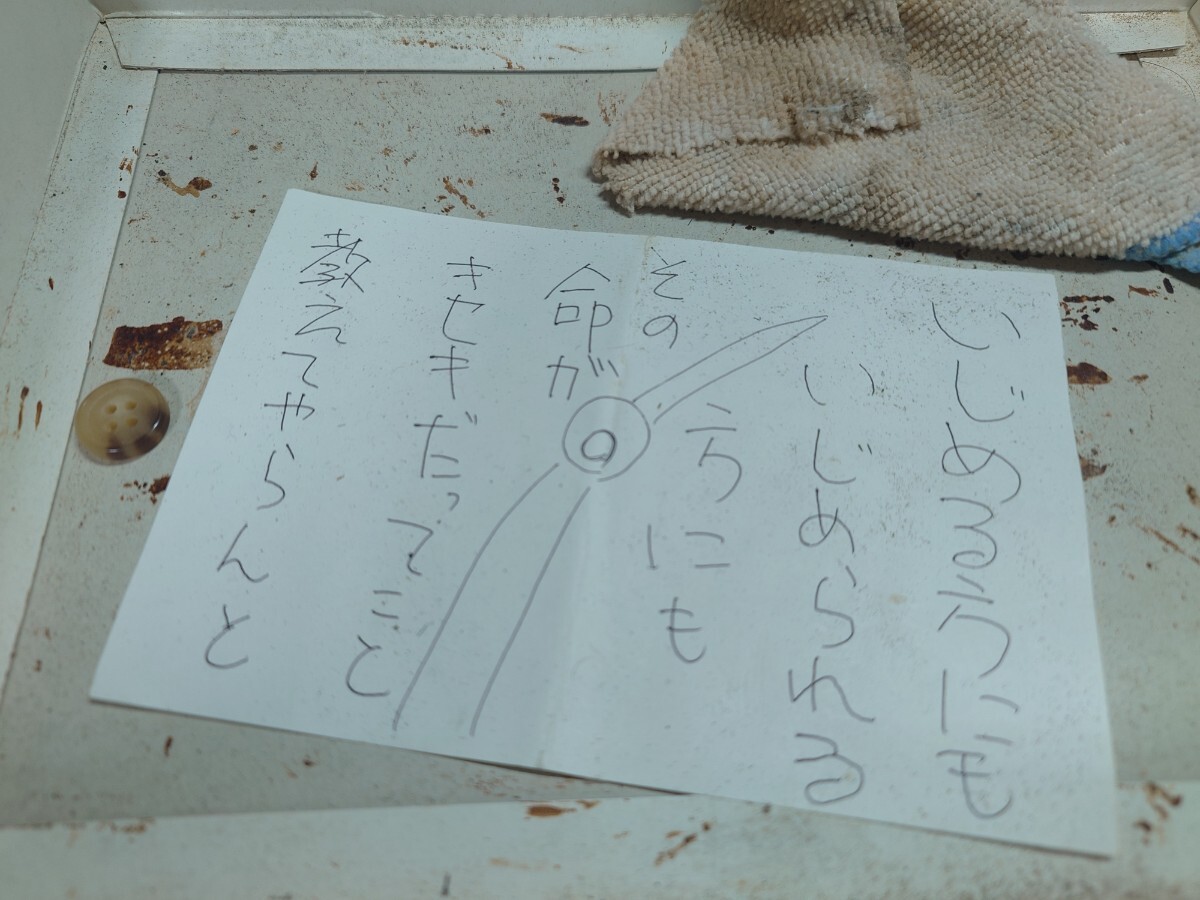 いじめるほうにも
いじめられる
ほうにも
その
命が
キセキだってこと
教えてやらんと